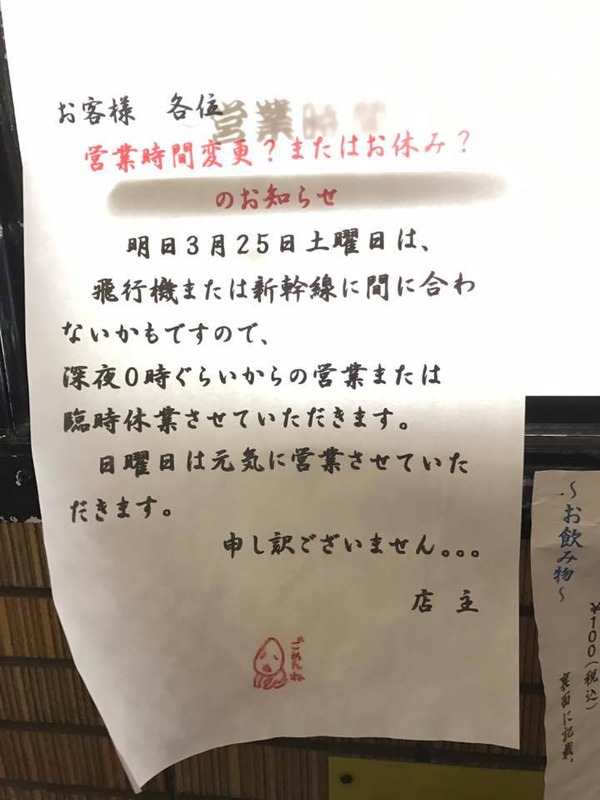 お客様　各位
営業時間変更？またはお休み？
のお知らせ
明日３月２５日土曜日は、
飛行機または新幹線に間に合わ
ないかもですので、
深夜０時ぐらいからの営業または
臨時休業させていただきます。
日曜日は元気に営業させていた
だきます。
申し訳ございません。。。
店　主
ごめんね
～お飲み物～
￥100(税込)
裏面に記載